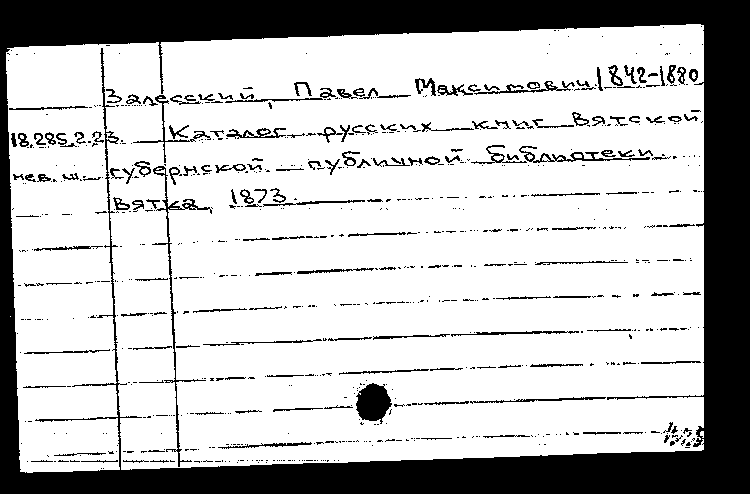 Залесский, Павел Максимович 1842-1880
18.285.2.23. Каталог русских книг Вятской
нев. ш. губернской публичной библиотеки.
Вятка, 1873.